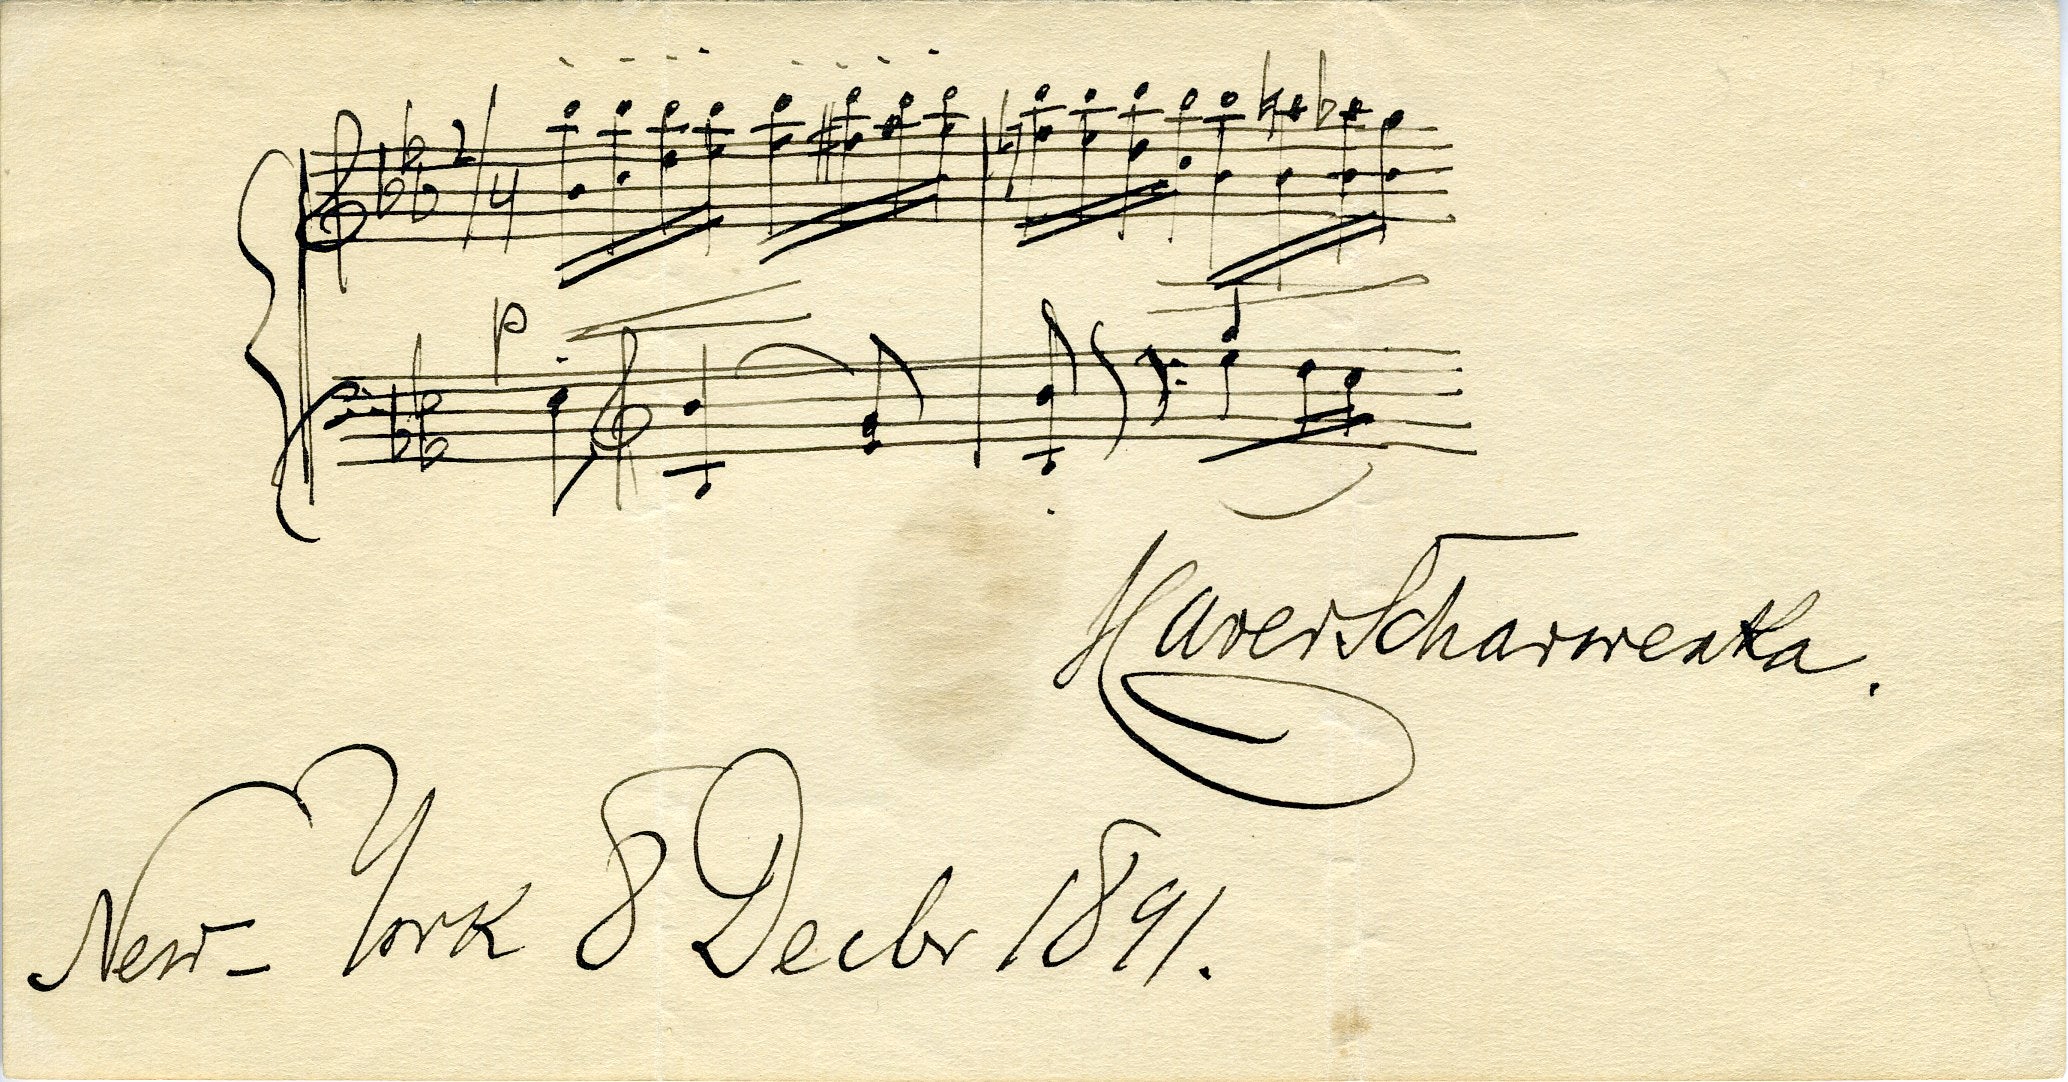 2/4
p
Xaver Scharwenka.
New-York 8 Decbr 1891.